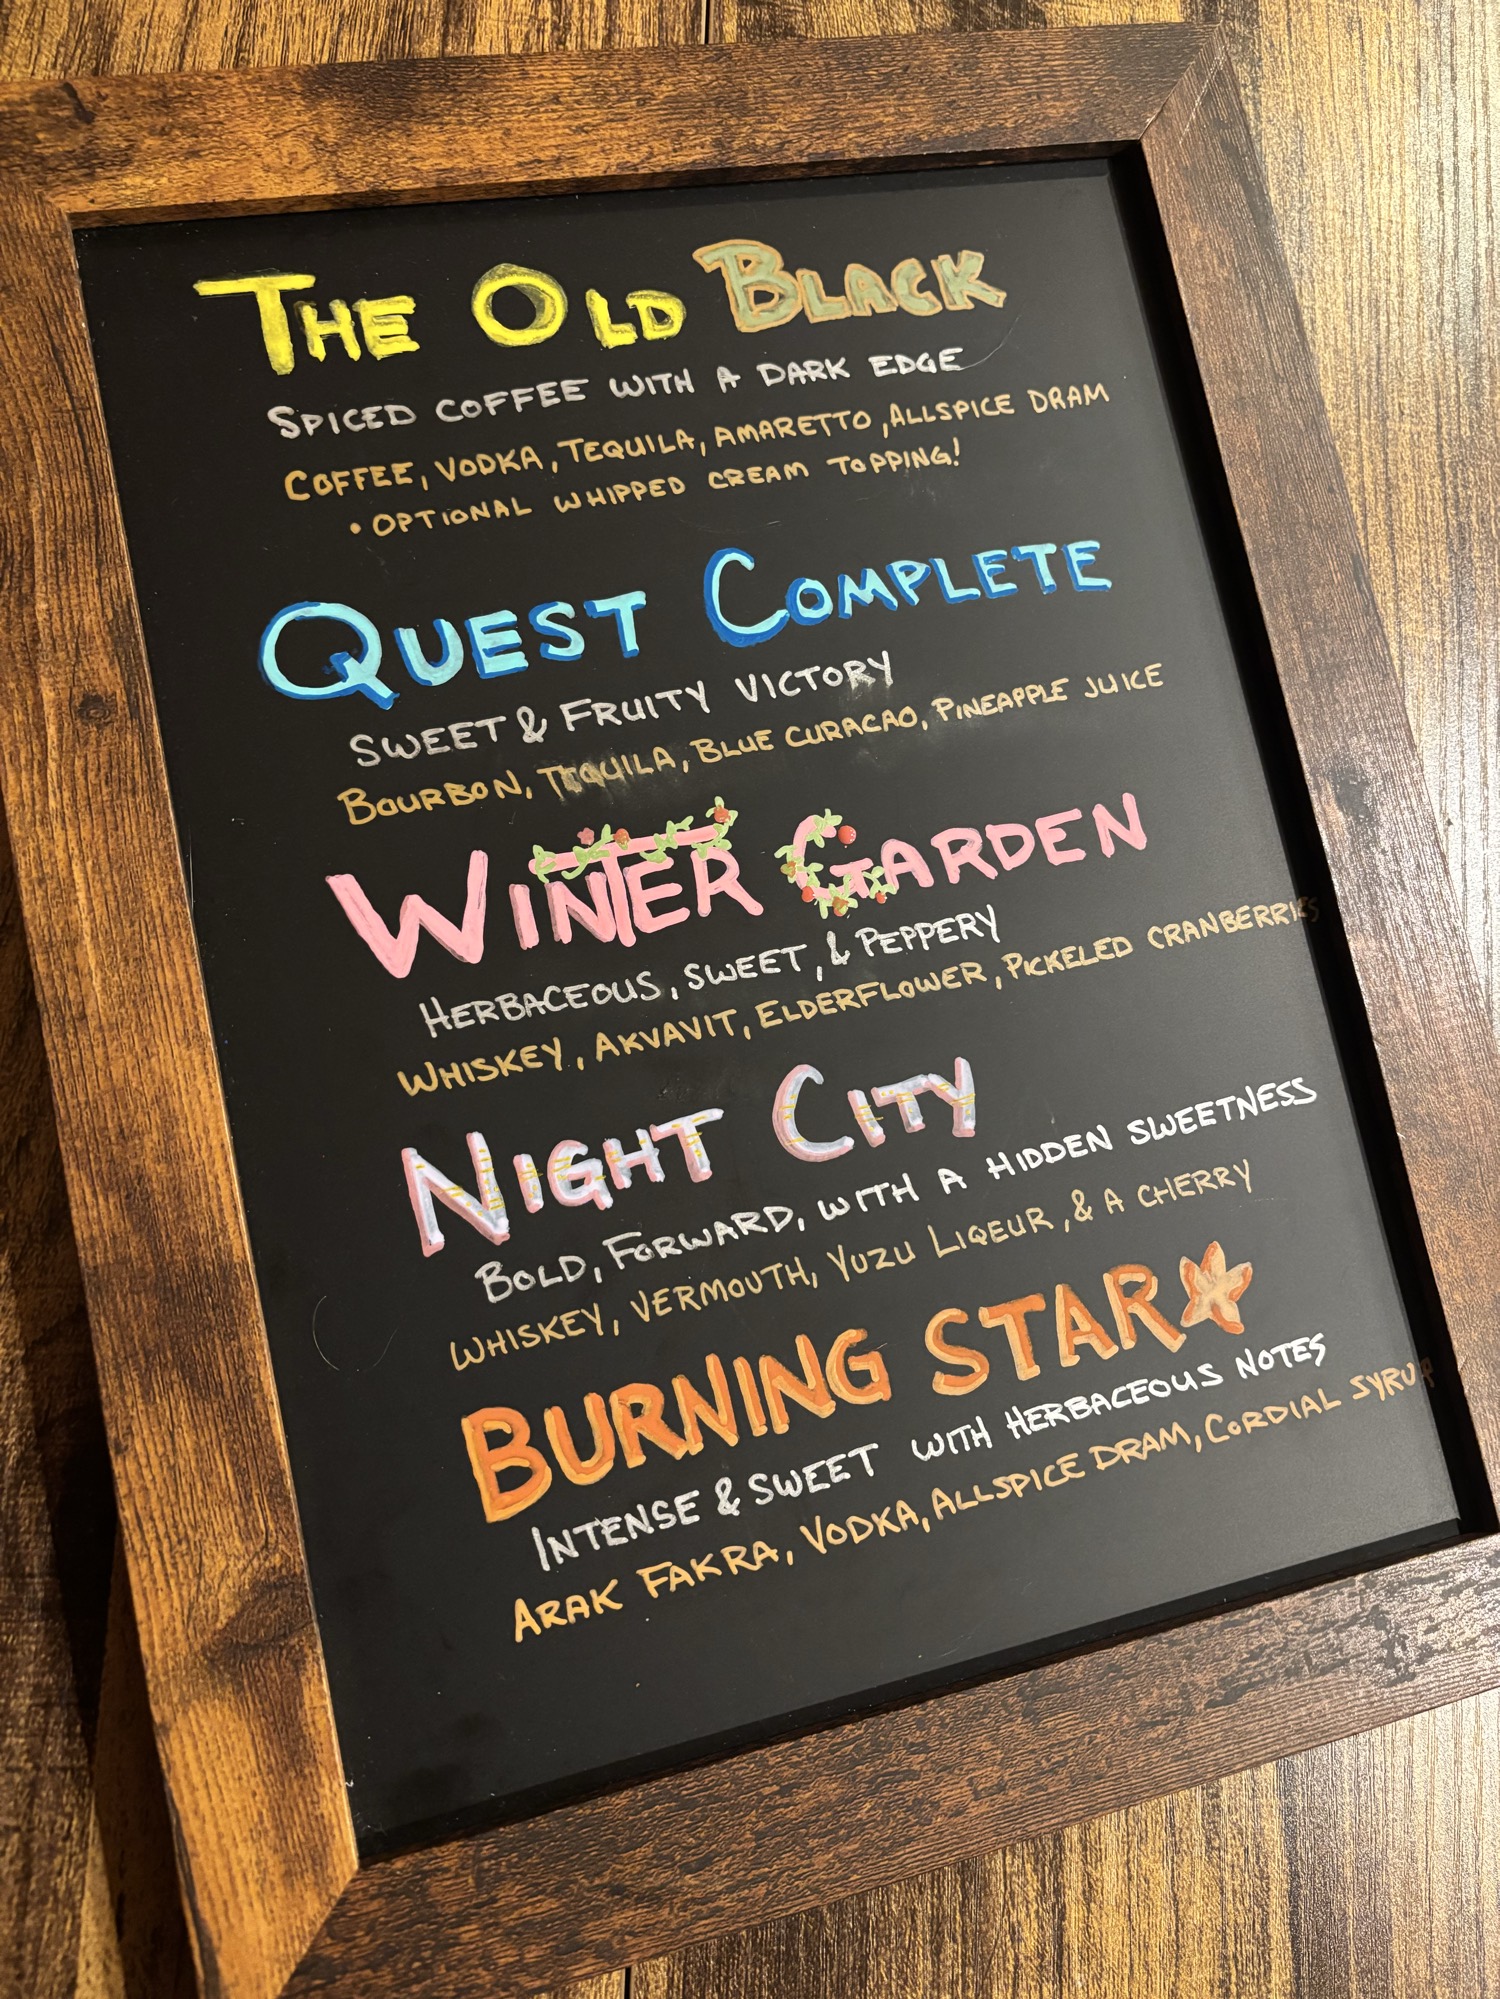 THE OLD BLACK
SPICED COFFEE WITH A DARK EDGE
COFFEE, VODKA, TEQUILA, AMARETTO, ALLSPICE DRAM
• OPTIONAL WHIPPED CREAM TOPPING!
QUEST COMPLETE
SWEET & FRUITY VICTORY
BOURBON, TEQUILA, BLUE CURACAO, PINEAPPLE JUICE
WINTER GARDEN
HERBACEOUS, SWEET, & PEPPERY
WHISKEY, AKVAVIT, ELDERFLOWER, PICKELED CRANBERRIES
NIGHT CITY
BOLD, FORWARD, WITH A HIDDEN SWEETNESS
WHISKEY, VERMOUTH, YUZU LIQEUR, & A CHERRY
BURNING STAR
INTENSE & SWEET WITH HERBACEOUS NOTES
ARAK FAKRA, VODKA, ALLSPICE DRAM, CORDIAL SYRUP